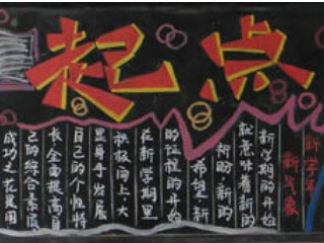 起点
新学年
新气象
新学期的开始
就意味着新的
祈盼新的
希望新
的征程的开始
在新学期里
积极向上,大
显身手发展
自己的个性特
长全面提高自
己的综合素质
成功之花是用